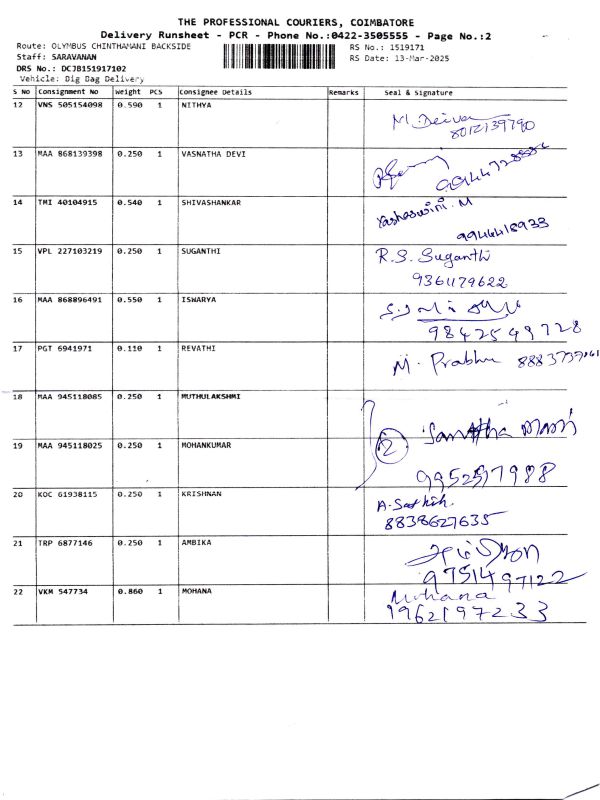 THE PROFESSIONAL COURIERS, COIMBATORE
Delivery Runsheet - PCR - Phone No.:0422-3505555 - Page No.:2
Route: OLYMBUS CHINTHAMANI BACKSIDE
RS No.: 1519171
Staff: SARAVANAN
RS Date: 13-Mar-2025
DRS No.: DCJB151917102
Vehicle: Dig Bag Delivery
S No Consignment No Weight PCS Consignee Details Remarks Seal & Signature
12 VNS 505154098 0.590 1 NITHYA
M. Deiva
8012139790
13 MAA 868139398 0.250 1 VASNATHA DEVI
14 TMI 40104915 0.540 1 SHIVASHANKAR
Yashaswini. M
9944418933
15 VPL 227103219 0.250 1 SUGANTHI
R.S. Suganthi
9361179622
16 MAA 868896491 0.550 1 ISWARYA
9842549728
17 PGT 6941971 0.110 1 REVATHI
M. Prabhu
18 MAA 945118085 0.250 1 MUTHULAKSHMI
2
19 MAA 945118025 0.250 1 MOHANKUMAR
20 KOC 61938115 0.250 1 KRISHNAN
A. Sathish.
8838627635
21 TRP 6877146 0.250 1 AMBIKA
9751497122
22 VKM 547734 0.860 1 MOHANA
Mohana
9962197233